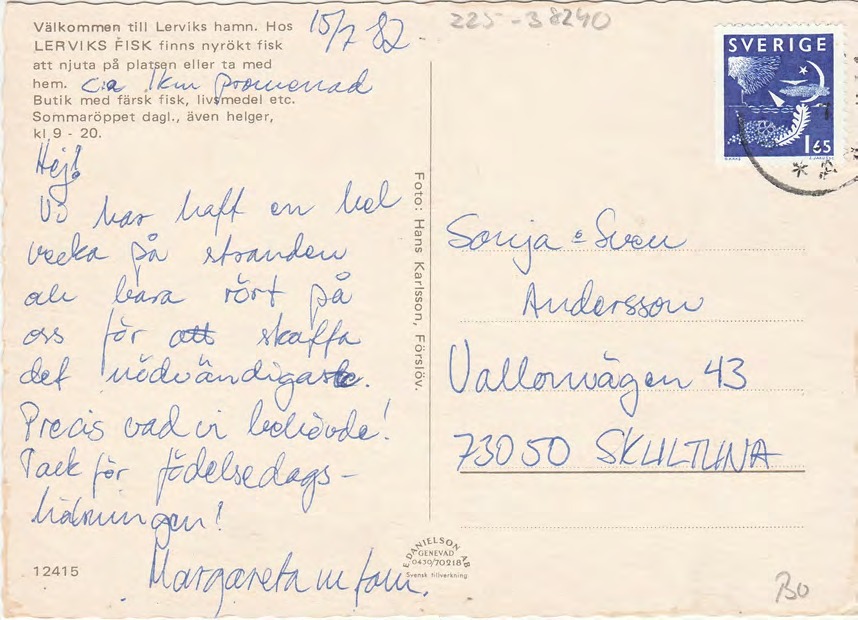 15/7 82
Välkommen till Lerviks hamn. Hos
LERVIKS FISK finns nyrökt fisk
att njuta på platsen eller ta med
hem. c:a 1km promenad
Butik med färsk fisk, livsmedel etc.
Sommaröppet dagl., även helger,
kl 9 - 20.
Hej!
Vi har haft en hel
vecka på stranden
och bara rört på
oss för att skaffa
det nödvändigaste.
Precis vad vi behövde!
Tack för födelsedags-
hälsningen!
Margareta m fam.
12415
Foto: Hans Karlsson, Förslöv.
E. DANIELSON AB
GENEVAD
0430/70218
Svensk tillverkning
225-38240
SVERIGE
165
Sonja & Sven
Andersson
Vallonvägen 43
73050 SKULTUNA
80